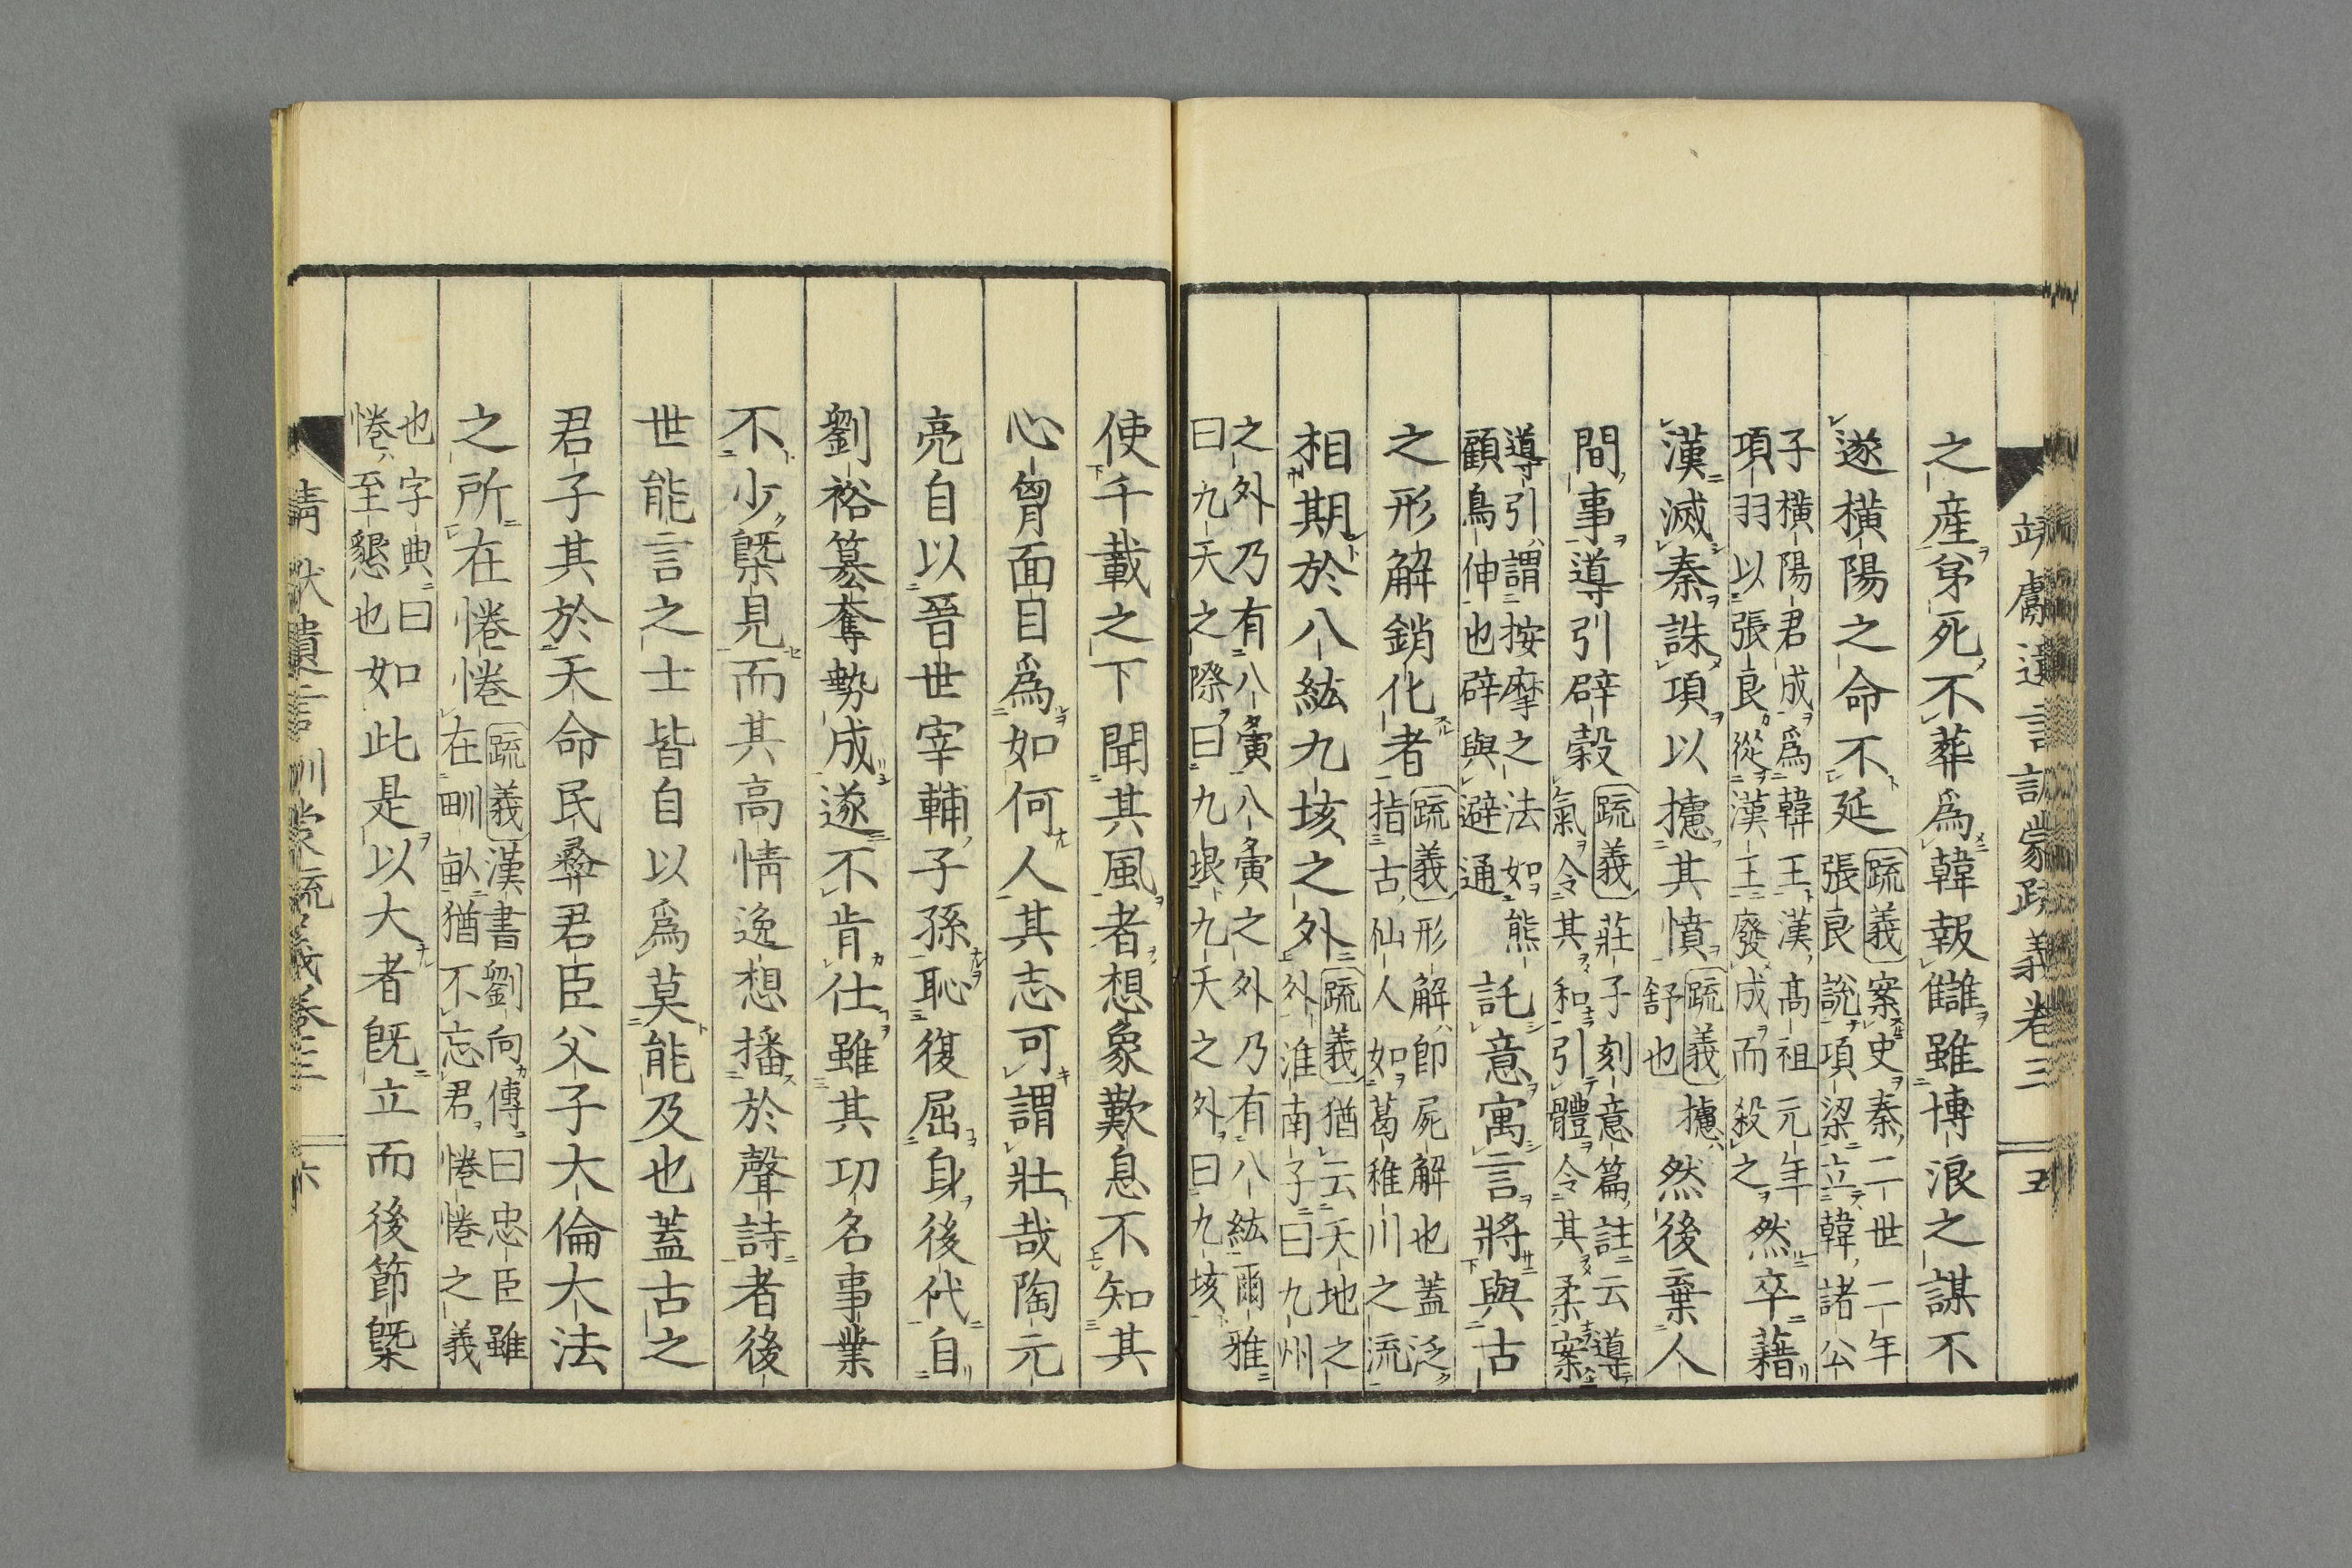 靖獻遺言訓蒙疏義卷三 五
之產弟死不葬爲韓報讎雖博浪之謀不
遂橫陽之命不延〔疏義〕案史秦二世二年張良說項梁立韓諸公
子橫陽君成爲韓王漢高祖元年項羽以張良從漢王廢成而殺之然卒藉
漢滅秦誅項以攄其憤〔疏義〕攄舒也然後棄人
間事導引辟穀〔疏義〕莊子刻意篇註云導氣令其和引體令其柔案
導引謂按摩之法如熊顧鳥伸也辟與避通託意寓言將與古
之形解銷化者〔疏義〕形解卽屍解也蓋泛指古仙人如葛稚川之流
相期於八紘九垓之外〔疏義〕猶云天地之外淮南子曰九州
之外乃有八夤八夤之外乃有八紘爾雅曰九天之際曰九垠九天之外曰九垓
使千載之下聞其風者想象歎息不知其
心胷面目爲如何人其志可謂壯哉陶元
亮自以晉世宰輔子孫恥復屈身後代自
劉裕篡奪勢成遂不肯仕雖其功名事業
不少槩見而其高情逸想播於聲詩者後
世能言之士皆自以爲莫能及也蓋古之
君子其於天命民彝君臣父子大倫大法
之所在惓惓〔疏義〕漢書劉向傳曰忠臣雖在畎畝猶不忘君惓惓之義
也字典曰惓至懇也如此是以大者旣立而後節槩
靖獻遺言訓蒙疏義卷三 六